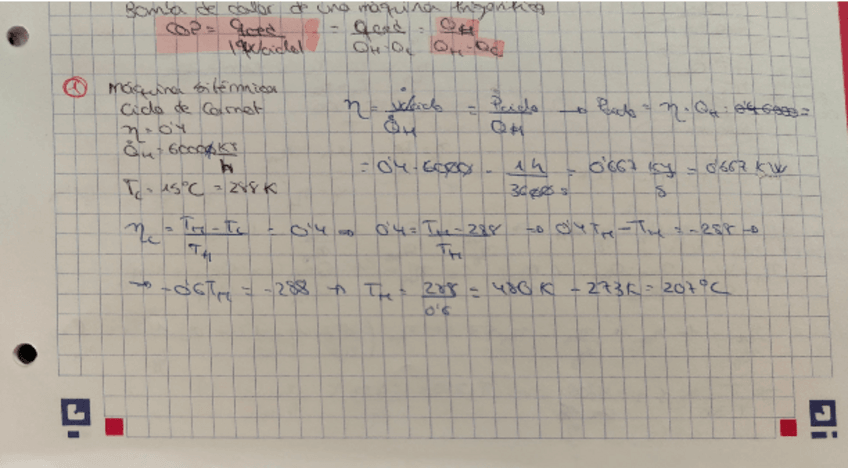 Bomba de calor de una máquina frigorífica
COP = Qced / |Wciclo| = Qced / QH-QC = QH / QH-QC
① Máquina bitérmica
Ciclo de Carnot
η = 0'4
Q̇H = 6000 KJ/h
TC = 15°C = 288 K
η = Ẇciclo / Q̇H = Pciclo / Q̇H → Pciclo = η · QH =
= 0'4 · 6000 · 1h / 3600s = 0'667 KJ/s = 0'667 KW
ηc = TH - TC / TH = 0'4 ⇒ 0'4 = TH - 288 / TH → 0'4TH - TH = -288 →
→ -0'6TH = -288 → TH = 288 / 0'6 = 480 K - 273K = 207°C